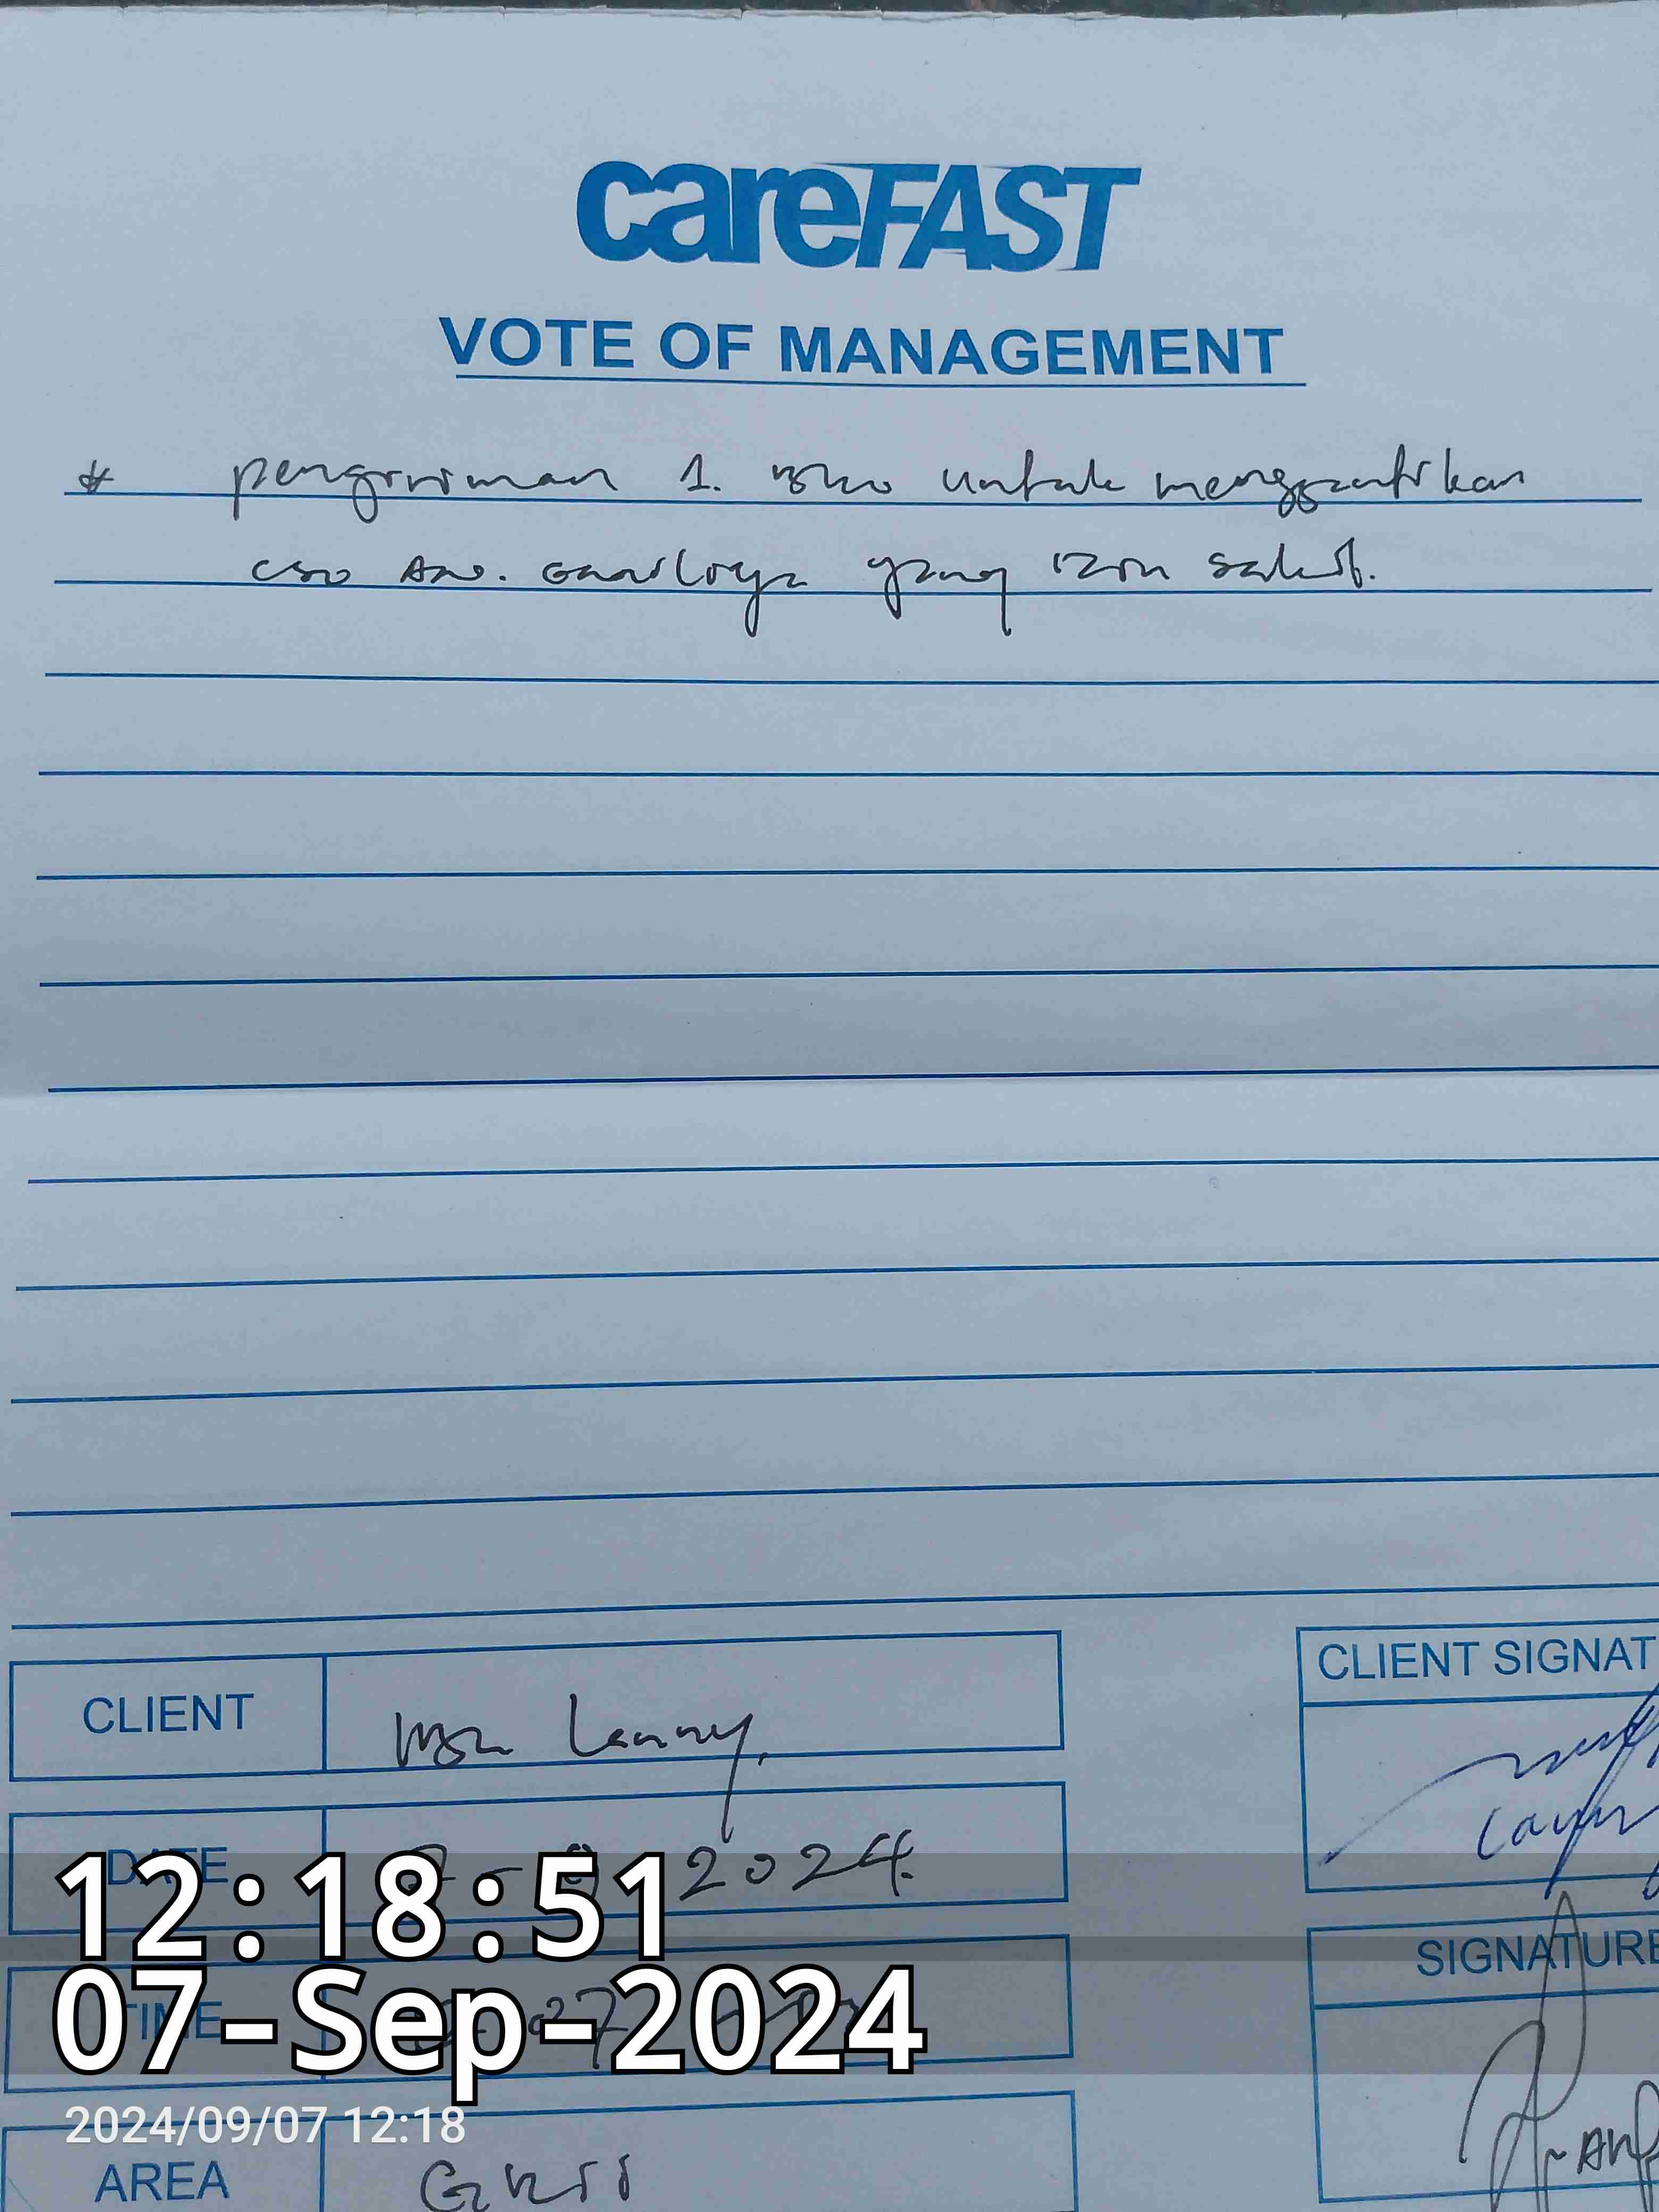 careFAST
VOTE OF MANAGEMENT
* pengiriman 1. BKO untuk menggantikan
CSO An. yang izin sakit.
CLIENT
Lenny
CLIENT SIGNAT
DATE
2024.
12:18:51
SIGNATURE
TIME
07-Sep-2024
2024/09/07 12:18
AREA